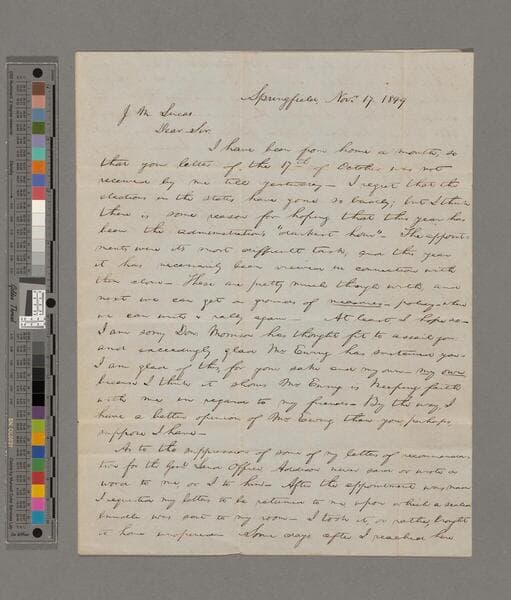 Springfield, Nov. 17. 1849
J. M. Lucas.
Dear Sir.
I have been from home a month, so
that your letter of the 17th of October was not
received by me till yesterday — I regret that the
elections in the states have gone so badly; but I think
there is some reason for hoping that this year has
been the administration's "darkest hour" — The appoint-
ments were its most difficult task, and this year
it has necessarily been viewed in connection with
them alone — These are pretty much through with, and
next we can get on grounds of measures — policy — where
we can unite & rally again — At least, I hope so —
I am sorry Don: Morrison has thought fit to assail you
and exceedingly glad Mr Ewing has sustained you —
I am glad of this, for your sake and my own — my own,
because I think it shows Mr Ewing is keeping faith
with me in regard to my friends — By the way, I
have a better opinion of Mr Ewing than you perhaps
suppose I have —
As to the suppression of some of my letters of recommenda-
tion for the Genl. Land Office Addison never said or wrote a
word to me, or I to him — After the appointment was made
I requested my letters to be returned to me, upon which a sealed
bundle was sent to my room — I took it, or rather, brought
it home unopened — Some days after I reached here